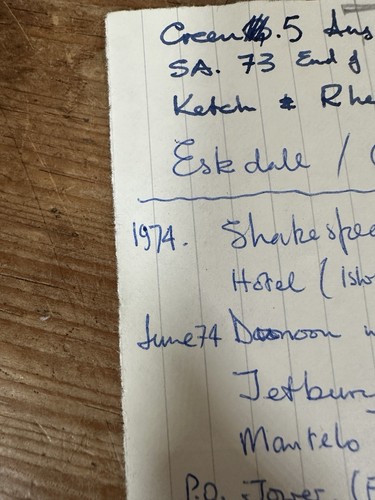 Green No. 5 Aus
SA. 73 End of
Ketch & Rhe
Eskdale / (
1974. Shakespea
Hotel (
June 74 Doonoon
Jetbur
Mantelo
P.O. Tower (